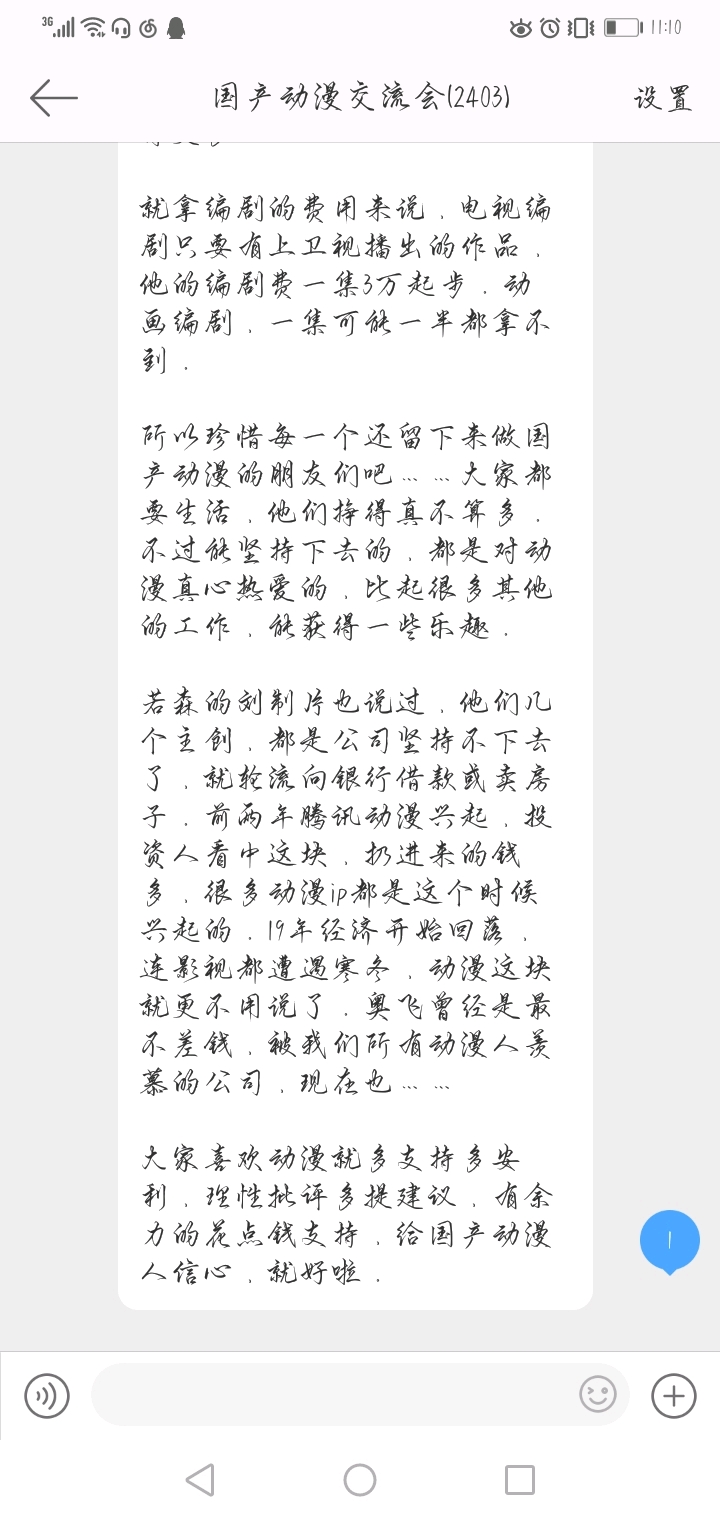 3G
11:10
国产动漫交流会(2403)
设置
就拿编剧的费用来说，电视编
剧只要有上卫视播出的作品，
他的编剧费一集3万起步，动
画编剧，一集可能一半都拿不
到．
所以珍惜每一个还留下来做国
产动漫的朋友们吧……大家都
要生活，他们挣得真不算多，
不过能坚持下去的，都是对动
漫真心热爱的，比起很多其他
的工作，能获得一些乐趣．
若森的刘制片也说过，他们几
个主创，都是公司坚持不下去
了，就轮流向银行借款或卖房
子．前两年腾讯动漫兴起，投
资人看中这块，扔进来的钱
多，很多动漫ip都是这个时候
兴起的．19年经济开始回落，
连影视都遭遇寒冬，动漫这块
就更不用说了．奥飞曾经是最
不差钱，被我们所有动漫人羡
慕的公司，现在也……
大家喜欢动漫就多支持多安
利，理性批评多提建议，有余
力的花点钱支持，给国产动漫
人信心，就好啦．
1